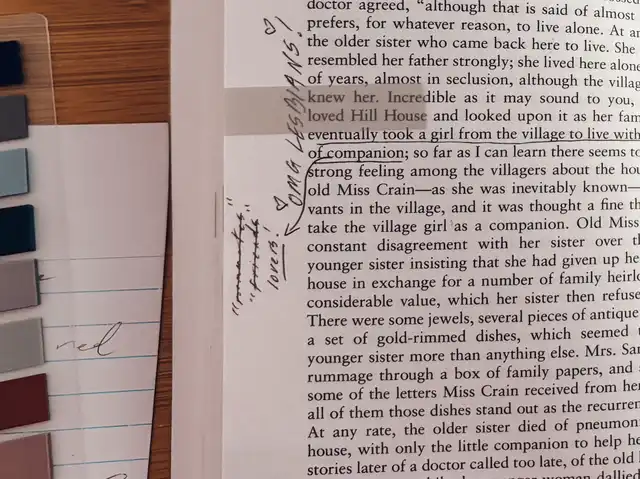 doctor agreed, "although that is said of almost
prefers, for whatever reason, to live alone. At an
the older sister who came back here to live. She
resembled her father strongly; she lived here alone
of years, almost in seclusion, although the villag
knew her. Incredible as it may sound to you,
loved Hill House and looked upon it as her fam
eventually took a girl from the village to live with
of companion; so far as I can learn there seems to
strong feeling among the villagers about the hou
old Miss Crain—as she was inevitably known—
vants in the village, and it was thought a fine th
take the village girl as a companion. Old Miss
constant disagreement with her sister over th
younger sister insisting that she had given up he
house in exchange for a number of family heirlo
considerable value, which her sister then refuse
There were some jewels, several pieces of antique
a set of gold-rimmed dishes, which seemed t
younger sister more than anything else. Mrs. San
rummage through a box of family papers, and
some of the letters Miss Crain received from her
all of them those dishes stand out as the recurren
At any rate, the older sister died of pneumon
house, with only the little companion to help he
stories later of a doctor called too late, of the old
younger woman dallied
OMG LESBIANS!
"friends"
lovers!
red